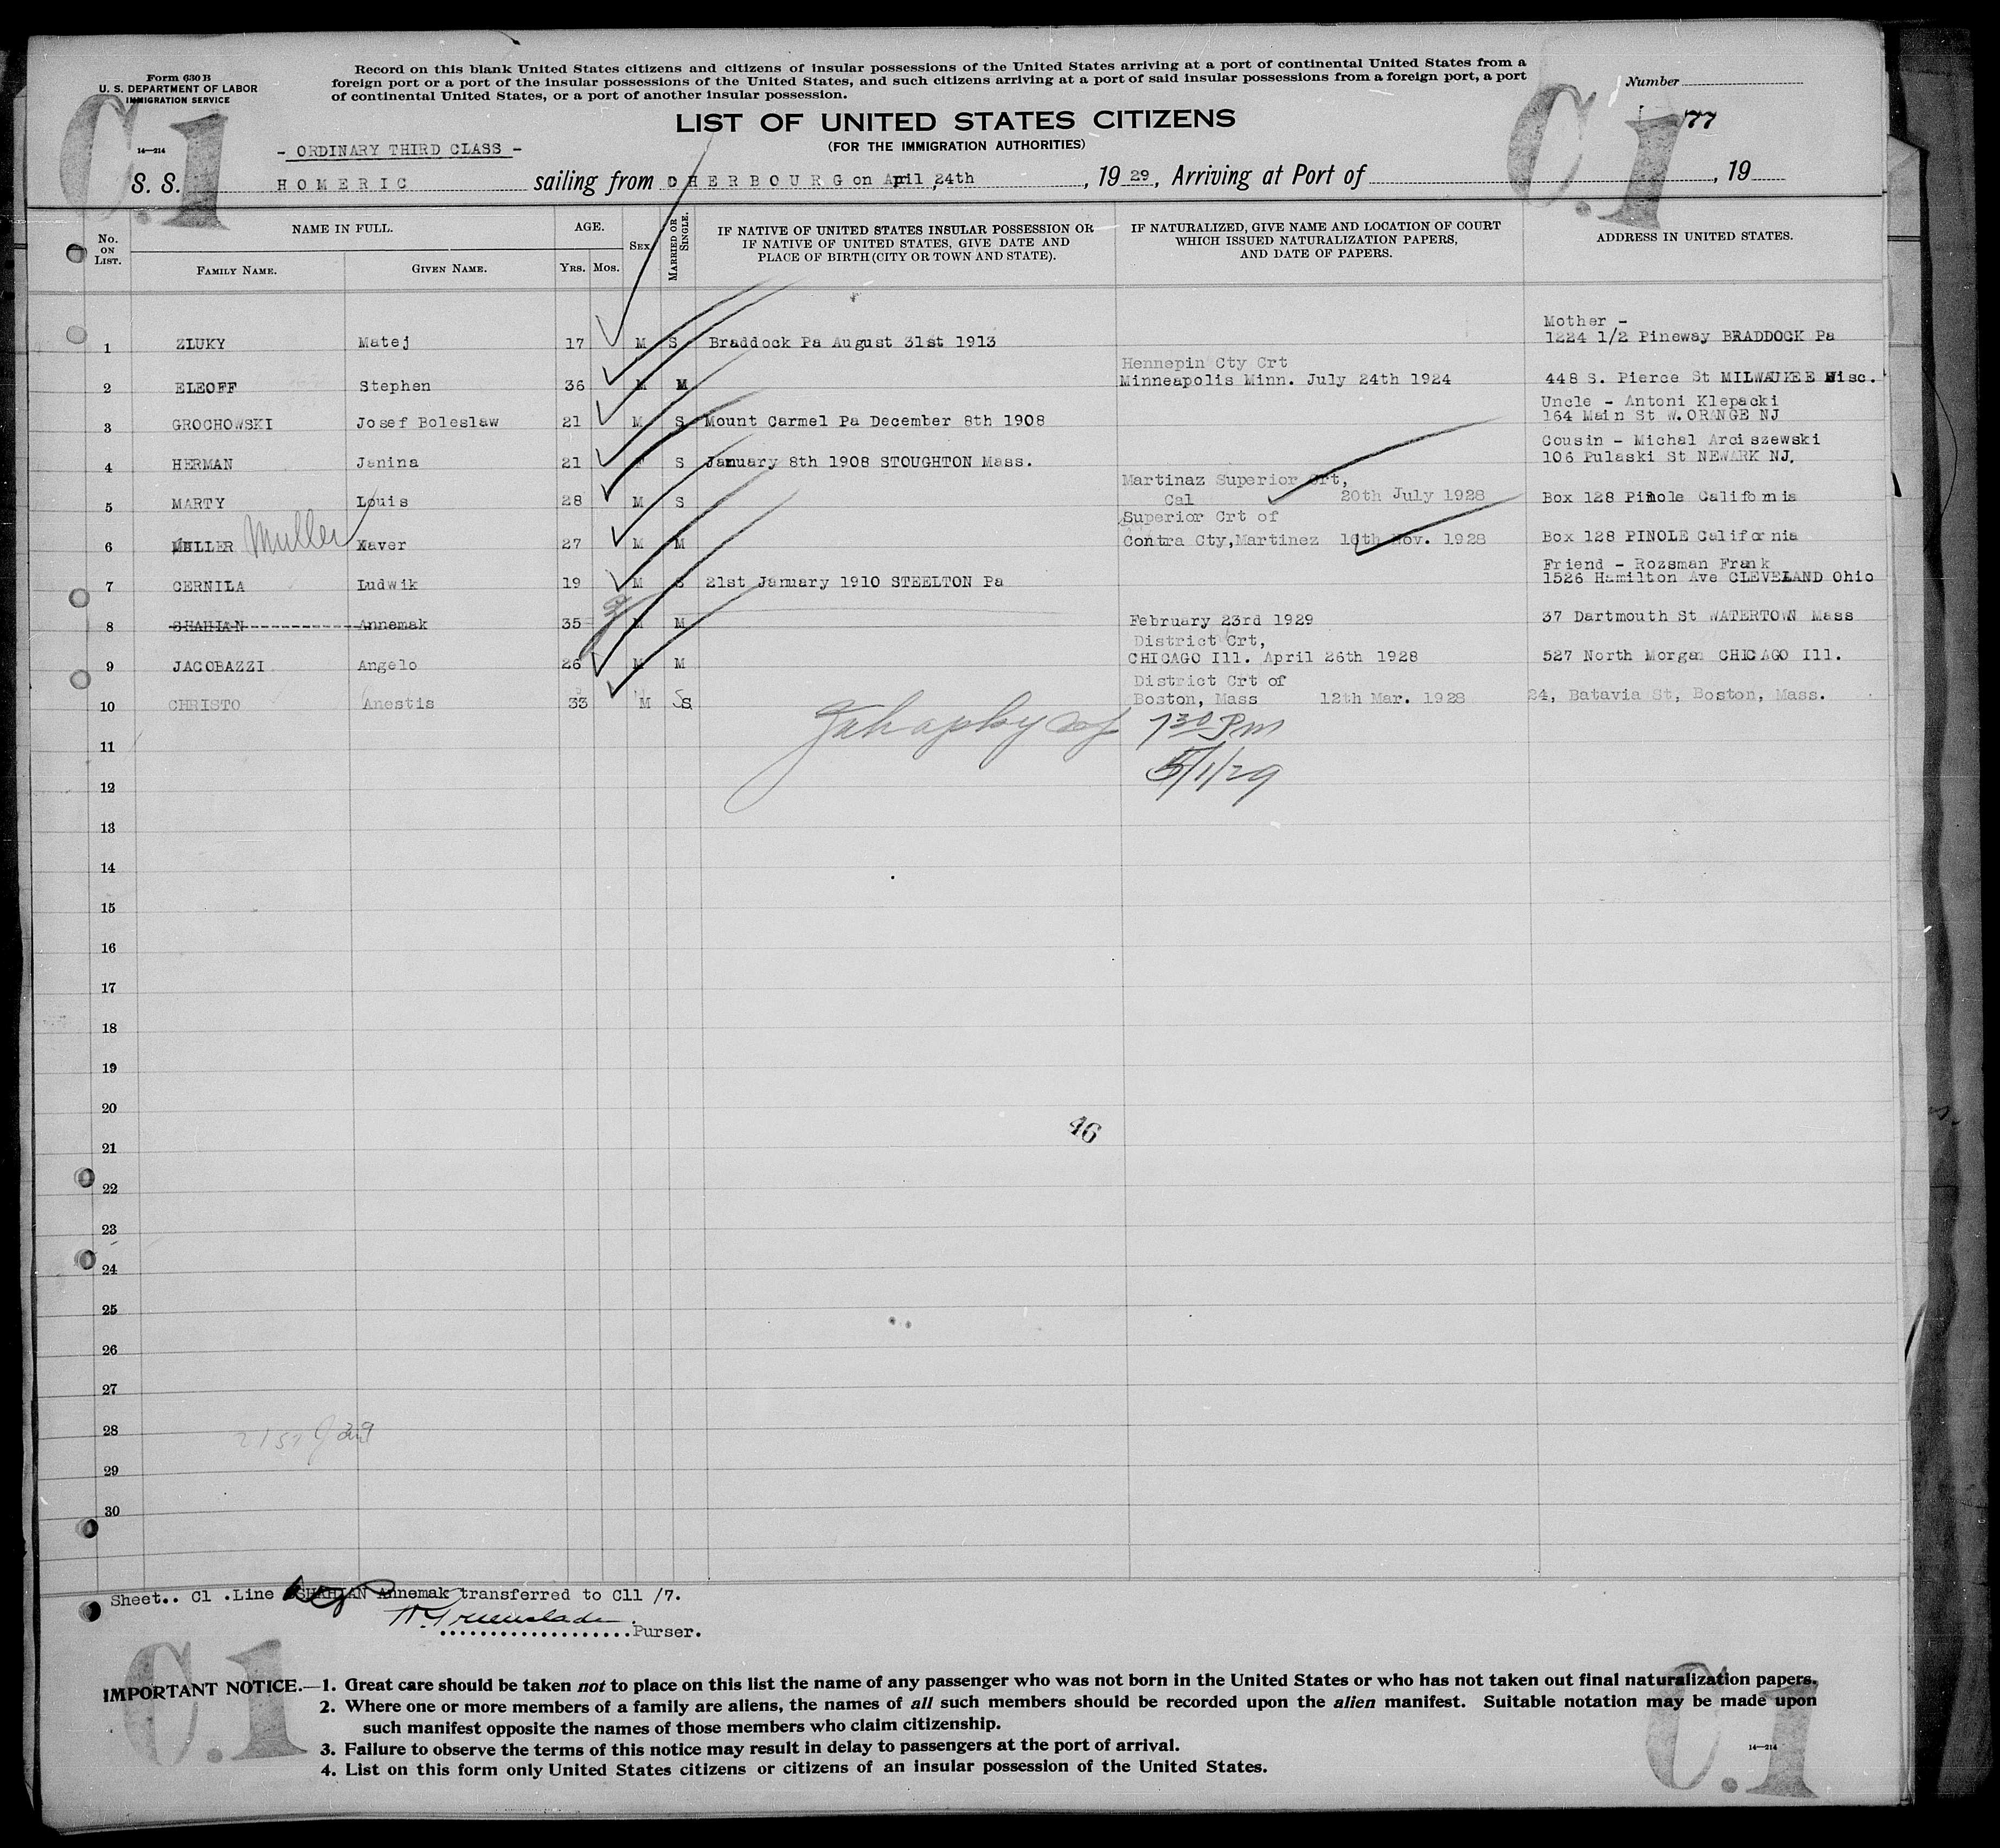 Form 630 B
U. S. DEPARTMENT OF LABOR
IMMIGRATION SERVICE
14—214
Record on this blank United States citizens and citizens of insular possessions of the United States arriving at a port of continental United States from a
foreign port or a port of the insular possessions of the United States, and such citizens arriving at a port of said insular possessions from a foreign port, a port
of continental United States, or a port of another insular possession.
Number
C.1
C.1
177
LIST OF UNITED STATES CITIZENS
(FOR THE IMMIGRATION AUTHORITIES)
- ORDINARY THIRD CLASS -
S. S. HOMERIC sailing from CHERBOURG on April 24th, 1929, Arriving at Port of , 19
No. ON LIST. NAME IN FULL. AGE. SEX MARRIED OR SINGLE. IF NATIVE OF UNITED STATES INSULAR POSSESSION OR IF NATIVE OF UNITED STATES, GIVE DATE AND PLACE OF BIRTH (CITY OR TOWN AND STATE). IF NATURALIZED, GIVE NAME AND LOCATION OF COURT WHICH ISSUED NATURALIZATION PAPERS, AND DATE OF PAPERS. ADDRESS IN UNITED STATES.
FAMILY NAME. GIVEN NAME. YRS. MOS.
Mother -
1 ZLUKY Matej 17 M S Braddock Pa August 31st 1913 1224 1/2 Pineway BRADDOCK Pa
Hennepin Cty Crt
2 ELEOFF Stephen 36 M M Minneapolis Minn. July 24th 1924 448 S. Pierce St MILWAUKEE Wisc.
Uncle - Antoni Klepacki
3 GROCHOWSKI Josef Boleslaw 21 M S Mount Carmel Pa December 8th 1908 164 Main St W. ORANGE NJ
Cousin - Michal Arciszewski
4 HERMAN Janina 21 F S January 8th 1908 STOUGHTON Mass. 106 Pulaski St NEWARK NJ.
Martinaz Superior Crt,
5 MARTY Louis 28 M S Cal 20th July 1928 Box 128 Pinole California
Superior Crt of
6 MULLER Muller Xaver 27 M M Contra Cty, Martinez 10th Nov. 1928 Box 128 PINOLE California
Friend - Rozsman Frank
7 CERNILA Ludwik 19 M S 21st January 1910 STEELTON Pa 1526 Hamilton Ave CLEVELAND Ohio
8 SHAHIAN Annemak 35 M M February 23rd 1929 37 Dartmouth St WATERTOWN Mass
District Crt,
9 JACOBAZZI Angelo 26 M M CHICAGO Ill. April 26th 1928 527 North Morgan CHICAGO Ill.
District Crt of
10 CHRISTO Anestis 33 M S Boston, Mass 12th Mar. 1928 24, Batavia St, Boston, Mass.
7 30 Pm
11
5/1/29
12
13
14
15
16
17
18
19
20
46
21
22
23
24
25
26
27
28
29
30
Sheet.. C1 .Line SHAHIAN Annemak transferred to C11 /7.
....................Purser.
C.1
C.1
IMPORTANT NOTICE.—1. Great care should be taken not to place on this list the name of any passenger who was not born in the United States or who has not taken out final naturalization papers.
2. Where one or more members of a family are aliens, the names of all such members should be recorded upon the alien manifest. Suitable notation may be made upon
such manifest opposite the names of those members who claim citizenship.
3. Failure to observe the terms of this notice may result in delay to passengers at the port of arrival.
4. List on this form only United States citizens or citizens of an insular possession of the United States.
14—214